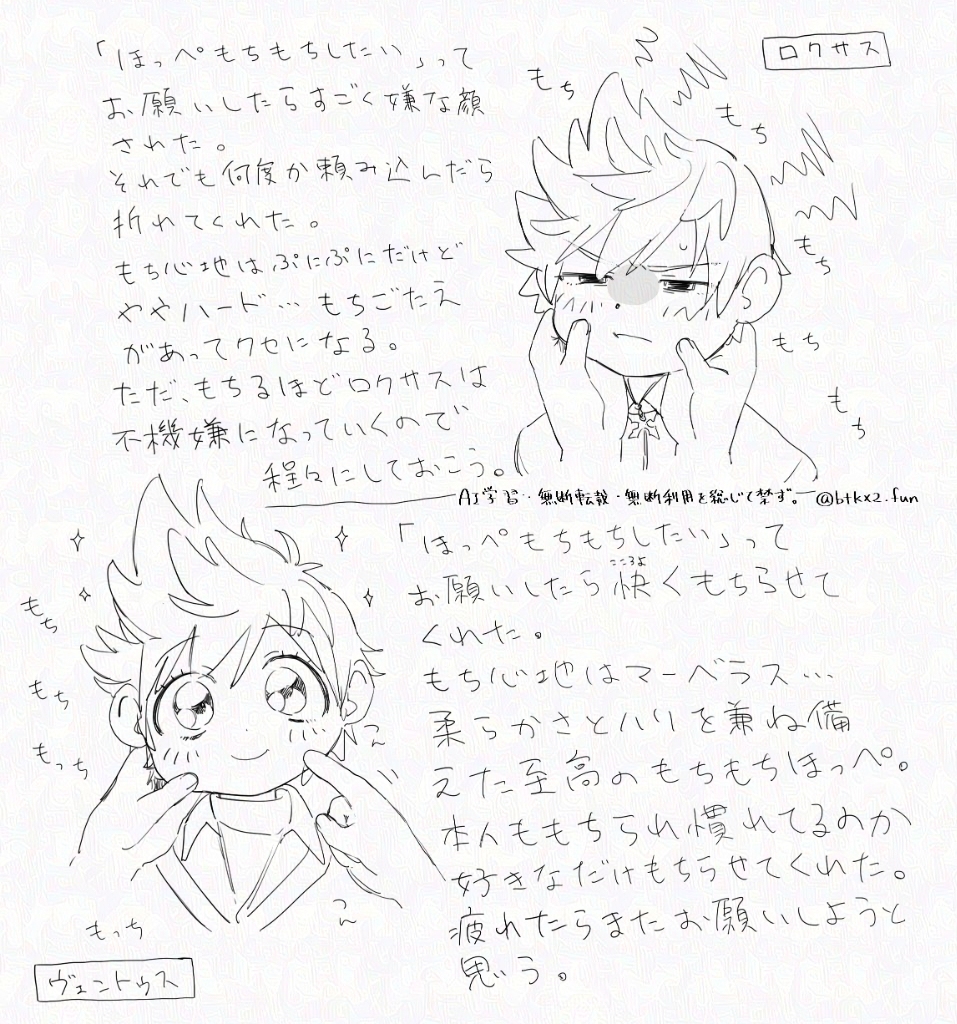 ロクサス
「ほっぺもちもちしたい」って
お願いしたらすごく嫌な顔
された。
それでも何度か頼み込んだら
折れてくれた。
もち心地はぷにぷにだけど
ややハード…もちごたえ
があってクセになる。
ただ、もちるほどロクサスは
不機嫌になっていくので
程々にしておこう。
もち
もち
もち
もち
もち
AI学習・無断転載・無断利用を総じて禁ず。@btkx2.fun
「ほっぺもちもちしたい」って
お願いしたら快くもちらせて
こころよ
くれた。
もち心地はマーベラス…
柔らかさとハリを兼ね備
えた至高のもちもちほっぺ。
本人ももちられ慣れてるのか
好きなだけもちらせてくれた。
疲れたらまたお願いしようと
思う。
もち
もち
もっち
もっち
ヴェントゥス